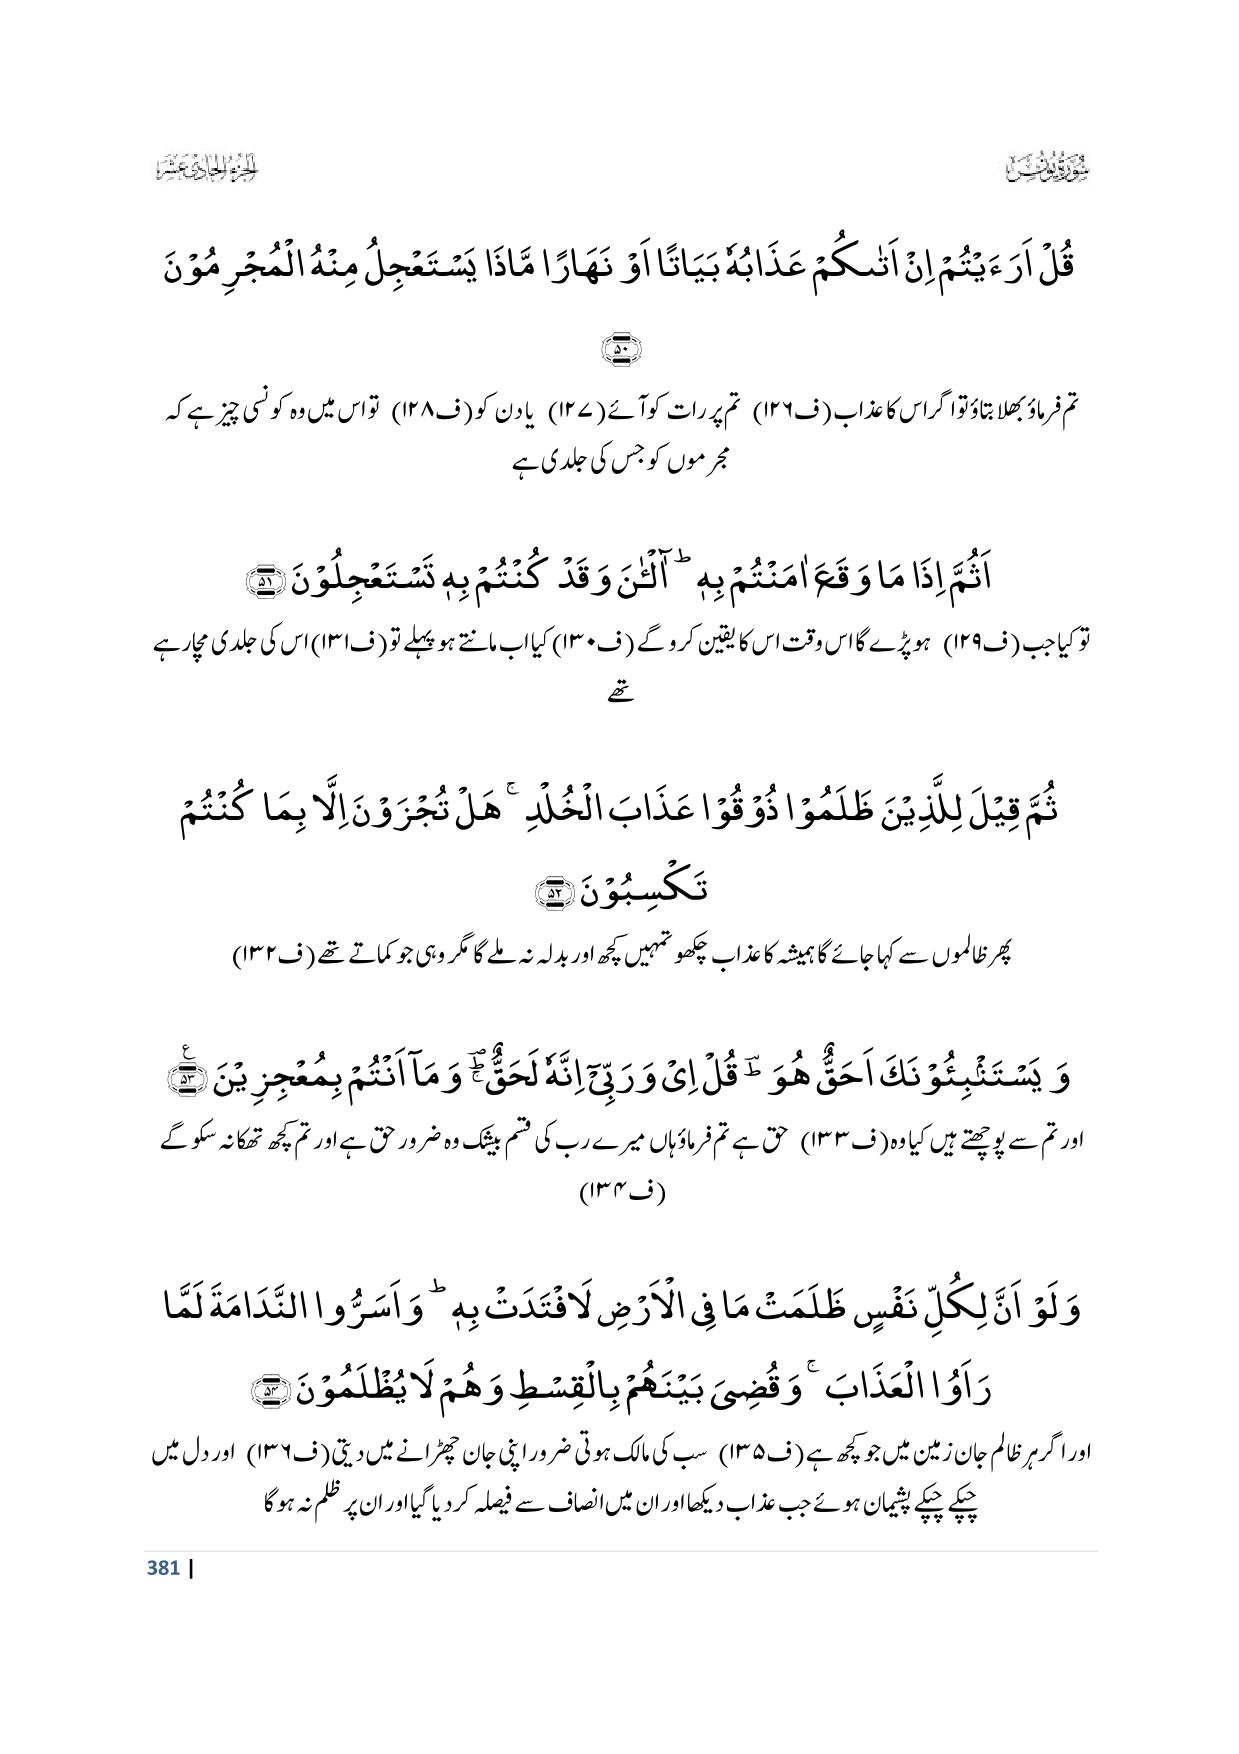 سُوْرَةُ يُوْنُس
الجزء الحادي عشر
قُلْ اَرَءَيْتُمْ اِنْ اَتٰىكُمْ عَذَابُهٗ بَيَاتًا اَوْ نَهَارًا مَّاذَا يَسْتَعْجِلُ مِنْهُ الْمُجْرِمُوْنَ
﴿۵۰﴾
تم فرماؤ بھلا بتاؤ تو اگر اس کا عذاب (ف۱۲۶) تم پر رات کو آئے (۱۲۷) یا دن کو (ف۱۲۸) تو اس میں وہ کونسی چیز ہے کہ
مجرموں کو جس کی جلدی ہے
اَثُمَّ اِذَا مَا وَقَعَ اٰمَنْتُمْ بِهٖ ؕ آٰلْـٰٔنَ وَ قَدْ كُنْتُمْ بِهٖ تَسْتَعْجِلُوْنَ ﴿۵۱﴾
تو کیا جب (ف۱۲۹) ہو پڑے گا اس وقت اس کا یقین کرو گے (ف۱۳۰) کیا اب مانتے ہو پہلے تو (ف۱۳۱) اس کی جلدی مچا رہے
تھے
ثُمَّ قِيْلَ لِلَّذِيْنَ ظَلَمُوْا ذُوْقُوْا عَذَابَ الْخُلْدِ ۚ هَلْ تُجْزَوْنَ اِلَّا بِمَا كُنْتُمْ
تَكْسِبُوْنَ ﴿۵۲﴾
پھر ظالموں سے کہا جائے گا ہمیشہ کا عذاب چکھو تمہیں کچھ اور بدلہ نہ ملے گا مگر وہی جو کماتے تھے (ف۱۳۲)
وَ يَسْتَنْۢبِـُٔوْنَكَ اَحَقٌّ هُوَ ؔؕ قُلْ اِيْ وَ رَبِّيْۤ اِنَّهٗ لَحَقٌّ ؔۚؕ وَ مَاۤ اَنْتُمْ بِمُعْجِزِيْنَ ﴿۵۳﴾ ع
اور تم سے پوچھتے ہیں کیا وہ (ف۱۳۳) حق ہے تم فرماؤ ہاں میرے رب کی قسم بیشک وہ ضرور حق ہے اور تم کچھ تھکا نہ سکو گے
(ف۱۳۴)
وَ لَوْ اَنَّ لِكُلِّ نَفْسٍ ظَلَمَتْ مَا فِي الْاَرْضِ لَافْتَدَتْ بِهٖ ؕ وَ اَسَرُّوا النَّدَامَةَ لَمَّا
رَاَوُا الْعَذَابَ ۚ وَ قُضِيَ بَيْنَهُمْ بِالْقِسْطِ وَ هُمْ لَا يُظْلَمُوْنَ ﴿۵۴﴾
اور اگر ہر ظالم جان زمین میں جو کچھ ہے (ف۱۳۵) سب کی مالک ہوتی ضرور اپنی جان چھڑانے میں دیتی (ف۱۳۶) اور دل میں
چپکے چپکے پشیمان ہوئے جب عذاب دیکھا اور ان میں انصاف سے فیصلہ کر دیا گیا اور ان پر ظلم نہ ہو گا
381 |